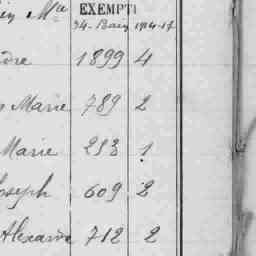 EXEMPTI
Mie
34. Bain 1914-17
dre 1899 4
Marie 789 2
Marie 293 1
Joseph 609 2
Alexandre 712 2